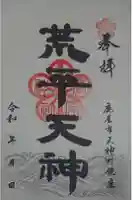 奉拝
鹿屋市天神町鎮座
荒平天神
令和 年 月 日